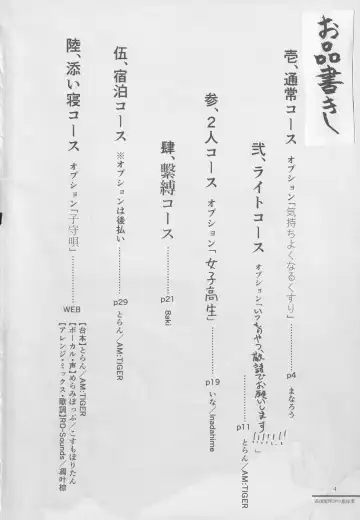 お品書きし
壱、通常コース オプション「気持ちよくなるくすり」………p4 まなろう
弐、ライトコース オプション「いつものやつ、敬語でお願いします!!!!!!」………p11 とらん/AM:TIGER
参、2人コース オプション「女子高生」………p19 いな/Inadahime
肆、繫縛コース………p21 8aki
伍、宿泊コース ※オプションは後払い………p29 とらん/AM:TIGER
陸、添い寝コース オプション「子守唄」………WEB
【台本】とらん/AM:TIGER
【ボーカル・声】めらみぽっぷ/こすもぽりたん
【アレンジ・ミックス・歌詞】RD-Sounds/凋叶棕
4